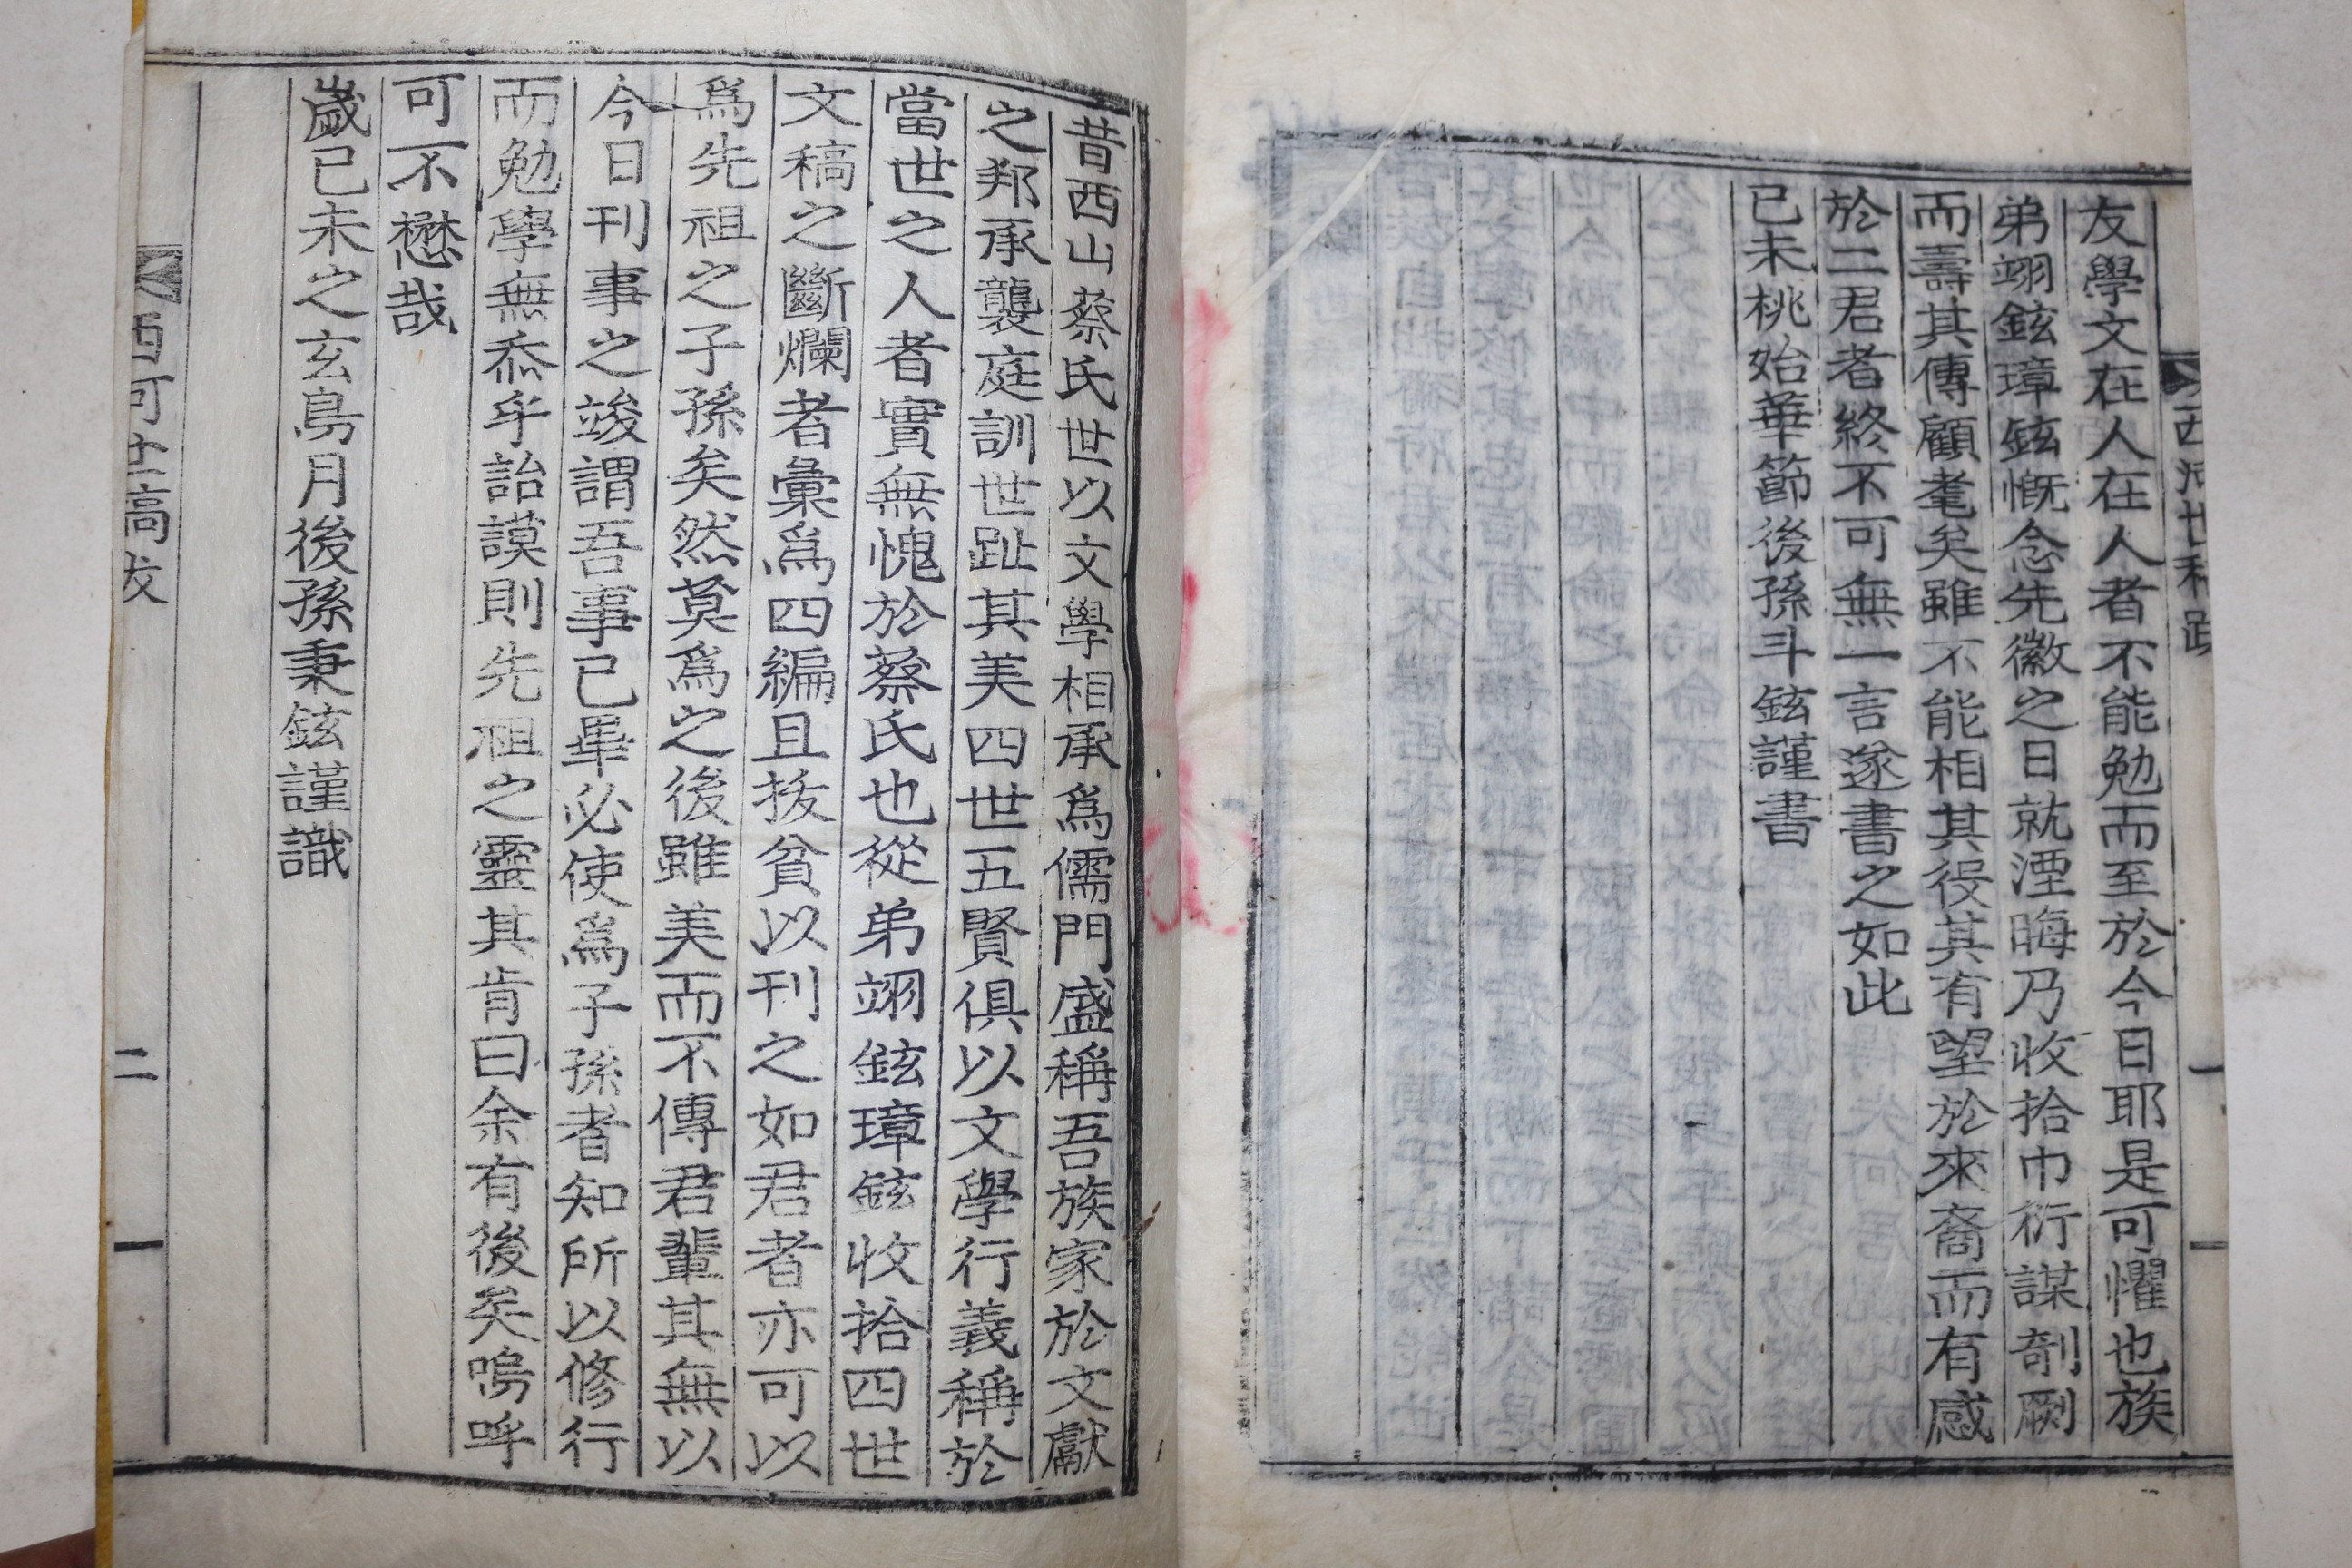 友學文在人在人者不能勉而至於今日耶是可懼也族
弟翊鉉璋鉉慨念先徽之日就湮晦乃收拾巾衍謀剞劂
而壽其傳顧耄矣雖不能相其役其有望於來裔而有感
於二君者終不可無一言遂書之如此
已未桃始華節後孫斗鉉謹書
昔西山蔡氏世以文學相承爲儒門盛稱吾族家於文獻
之邦承襲庭訓世趾其美四世五賢俱以文學行義稱於
當世之人者實無愧於蔡氏也從弟翊鉉璋鉉收拾四世
文稿之斷爛者彙爲四編且拔貧以刊之如君者亦可以
爲先祖之子孫矣然莫爲之後雖美而不傳君輩其無以
今日刊事之竣謂吾事已畢必使爲子孫者知所以修行
而勉學無忝乎詒謨則先祖之靈其肯曰余有後矣嗚呼
可不懋哉
歲已未之玄鳥月後孫秉鉉謹識
西河世稿跋
二